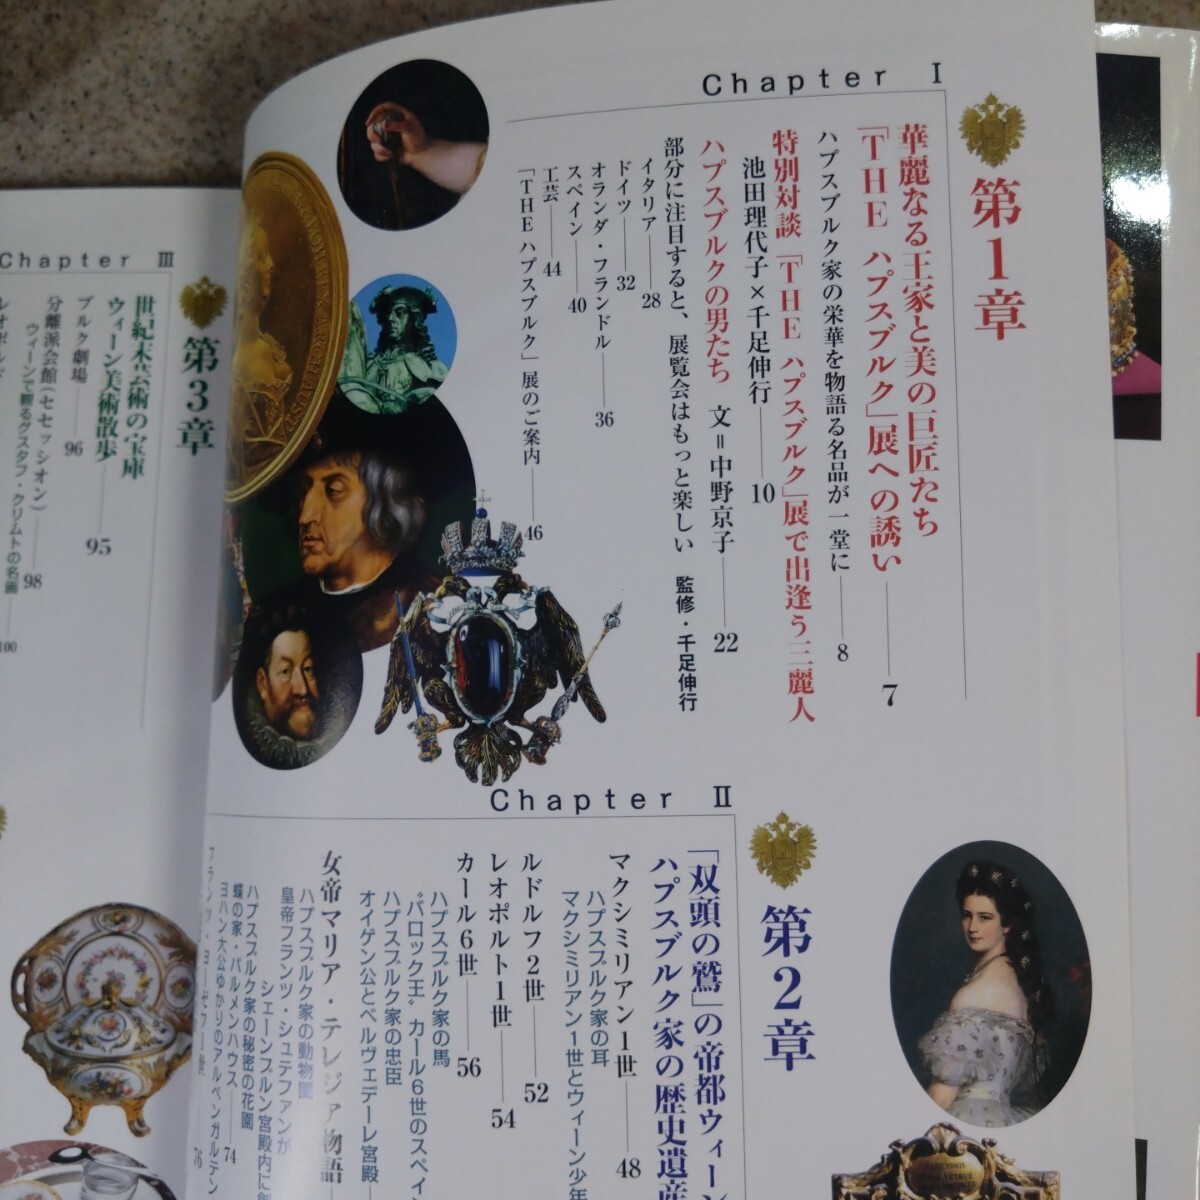 Chapter Ⅰ
第1章
華麗なる王家と美の巨匠たち
「THE ハプスブルク」展への誘い 7
ハプスブルク家の栄華を物語る名品が一堂に 8
特別対談「THE ハプスブルク」展で出逢う三麗人
池田理代子×千足伸行 10
ハプスブルクの男たち 文=中野京子 22
部分に注目すると、展覧会はもっと楽しい 監修・千足伸行
イタリア 28
ドイツ 32
オランダ・フランドル 36
スペイン 40
工芸 44
「THE ハプスブルク」展のご案内 46
Chapter Ⅱ
第2章
「双頭の鷲」の帝都ウィーン
ハプスブルク家の歴史遺産
マクシミリアン1世 48
ハプスブルク家の耳
マクシミリアン1世とウィーン少年
ルドルフ2世 52
レオポルト1世 54
カール6世 56
ハプスブルク家の馬
“バロック王”カール6世のスペイン
ハプスブルク家の忠臣
オイゲン公とベルヴェデーレ宮殿
女帝マリア・テレジア物語
ハプスブルク家の動物園
皇帝フランツ・シュテファンが
シェーンブルン宮殿内に創
ハプスブルク家の秘密の花園
蝶の家・パルメンハウス 74
ヨハン大公ゆかりのアルペンガルテン 76
フランツ・ヨーゼフ1世
Chapter Ⅲ
第3章
世紀末芸術の宝庫
ウィーン美術散歩 95
ブルク劇場 96
分離派会館(セセッシオン) 98
ウィーンで観るグスタフ・クリムトの名画 100
レオポルド